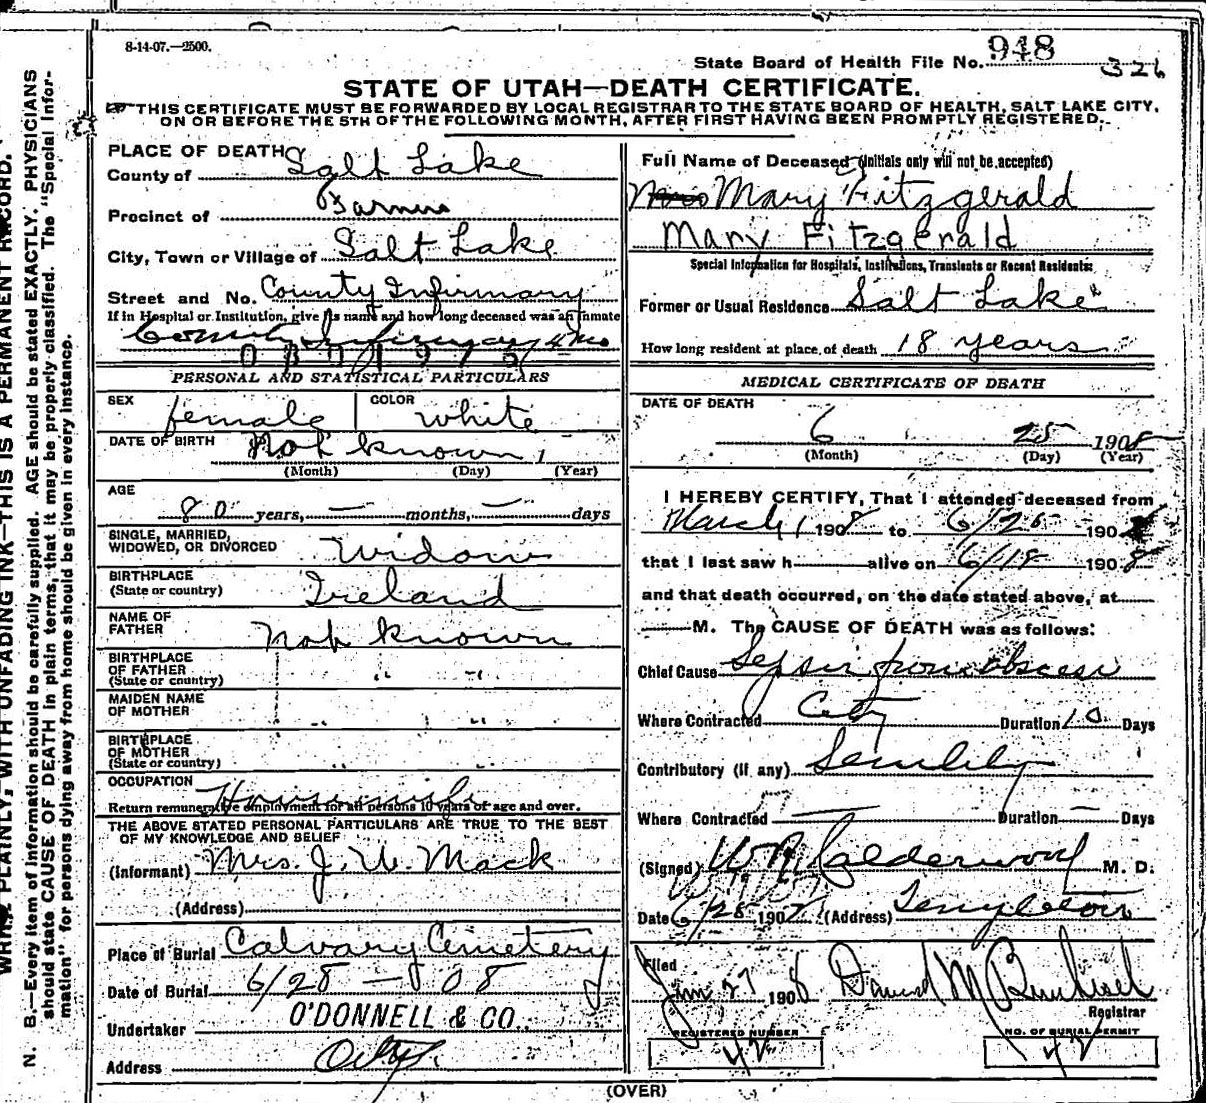 8-14-07.—2500.
State Board of Health File No. 948
326
STATE OF UTAH—DEATH CERTIFICATE.
THIS CERTIFICATE MUST BE FORWARDED BY LOCAL REGISTRAR TO THE STATE BOARD OF HEALTH, SALT LAKE CITY,
ON OR BEFORE THE 5TH OF THE FOLLOWING MONTH, AFTER FIRST HAVING BEEN PROMPTLY REGISTERED.
PLACE OF DEATH
County of Salt Lake
Precinct of
City, Town or Village of Salt Lake
Street and No. County Infirmary
If in Hospital or Institution, give its name and how long deceased was an inmate
County Infirmary 4 mo
PERSONAL AND STATISTICAL PARTICULARS
SEX female COLOR white
DATE OF BIRTH Not known
(Month) (Day) (Year)
AGE
80 years, — months, — days
SINGLE, MARRIED,
WIDOWED, OR DIVORCED Widow
BIRTHPLACE
(State or country) Ireland
NAME OF
FATHER not known
BIRTHPLACE
OF FATHER
(State or country) " "
MAIDEN NAME
OF MOTHER " "
BIRTHPLACE
OF MOTHER
(State or country) " "
OCCUPATION Housewife
Return remunerative employment for all persons 10 years of age and over.
THE ABOVE STATED PERSONAL PARTICULARS ARE TRUE TO THE BEST
OF MY KNOWLEDGE AND BELIEF
(Informant) Mrs. J. W. Mack
(Address)
Place of Burial Calvary Cemetery
Date of Burial 6/28 — 08
Undertaker O'DONNELL & CO.
Address City
Full Name of Deceased (Initials only will not be accepted)
Mary Fitzgerald
Mary Fitzgerald
Special Information for Hospitals, Institutions, Transients or Recent Residents:
Former or Usual Residence Salt Lake
How long resident at place of death 18 years
MEDICAL CERTIFICATE OF DEATH
DATE OF DEATH
6 25 1908
(Month) (Day) (Year)
I HEREBY CERTIFY, That I attended deceased from
March 1 1908 to 6/25 1908
that I last saw h alive on 6/18 1908
and that death occurred, on the date stated above, at
M. The CAUSE OF DEATH was as follows:
Chief Cause Sepsis from abscess
Where Contracted City Duration 10 Days
Contributory (if any) Senility
Where Contracted — Duration — Days
(Signed) W. R. Calderwood M. D.
Date 6/28 190 (Address) Templeton
Filed Jun 27 1908
Registrar
REGISTERED NUMBER
42
NO. OF BURIAL PERMIT
42
(OVER)
WRITE PLAINLY, WITH UNFADING INK—THIS IS A PERMANENT RECORD.
N. B.—Every item of information should be carefully supplied. AGE should be stated EXACTLY. PHYSICIANS
should state CAUSE OF DEATH in plain terms, that it may be properly classified. The "Special Infor-
mation" for persons dying away from home should be given in every instance.